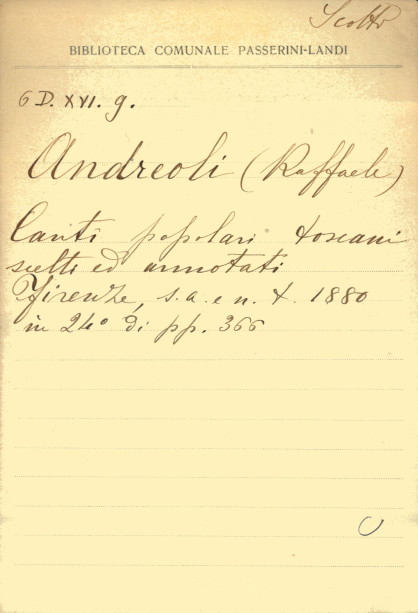 Scotto
BIBLIOTECA COMUNALE PASSERINI-LANDI
6 D. XVI. g.
Andreoli (Raffaele)
Canti popolari toscani
scelti ed annotati
Firenze, s. a. e n. t. 1880
in 24º di pp. 366